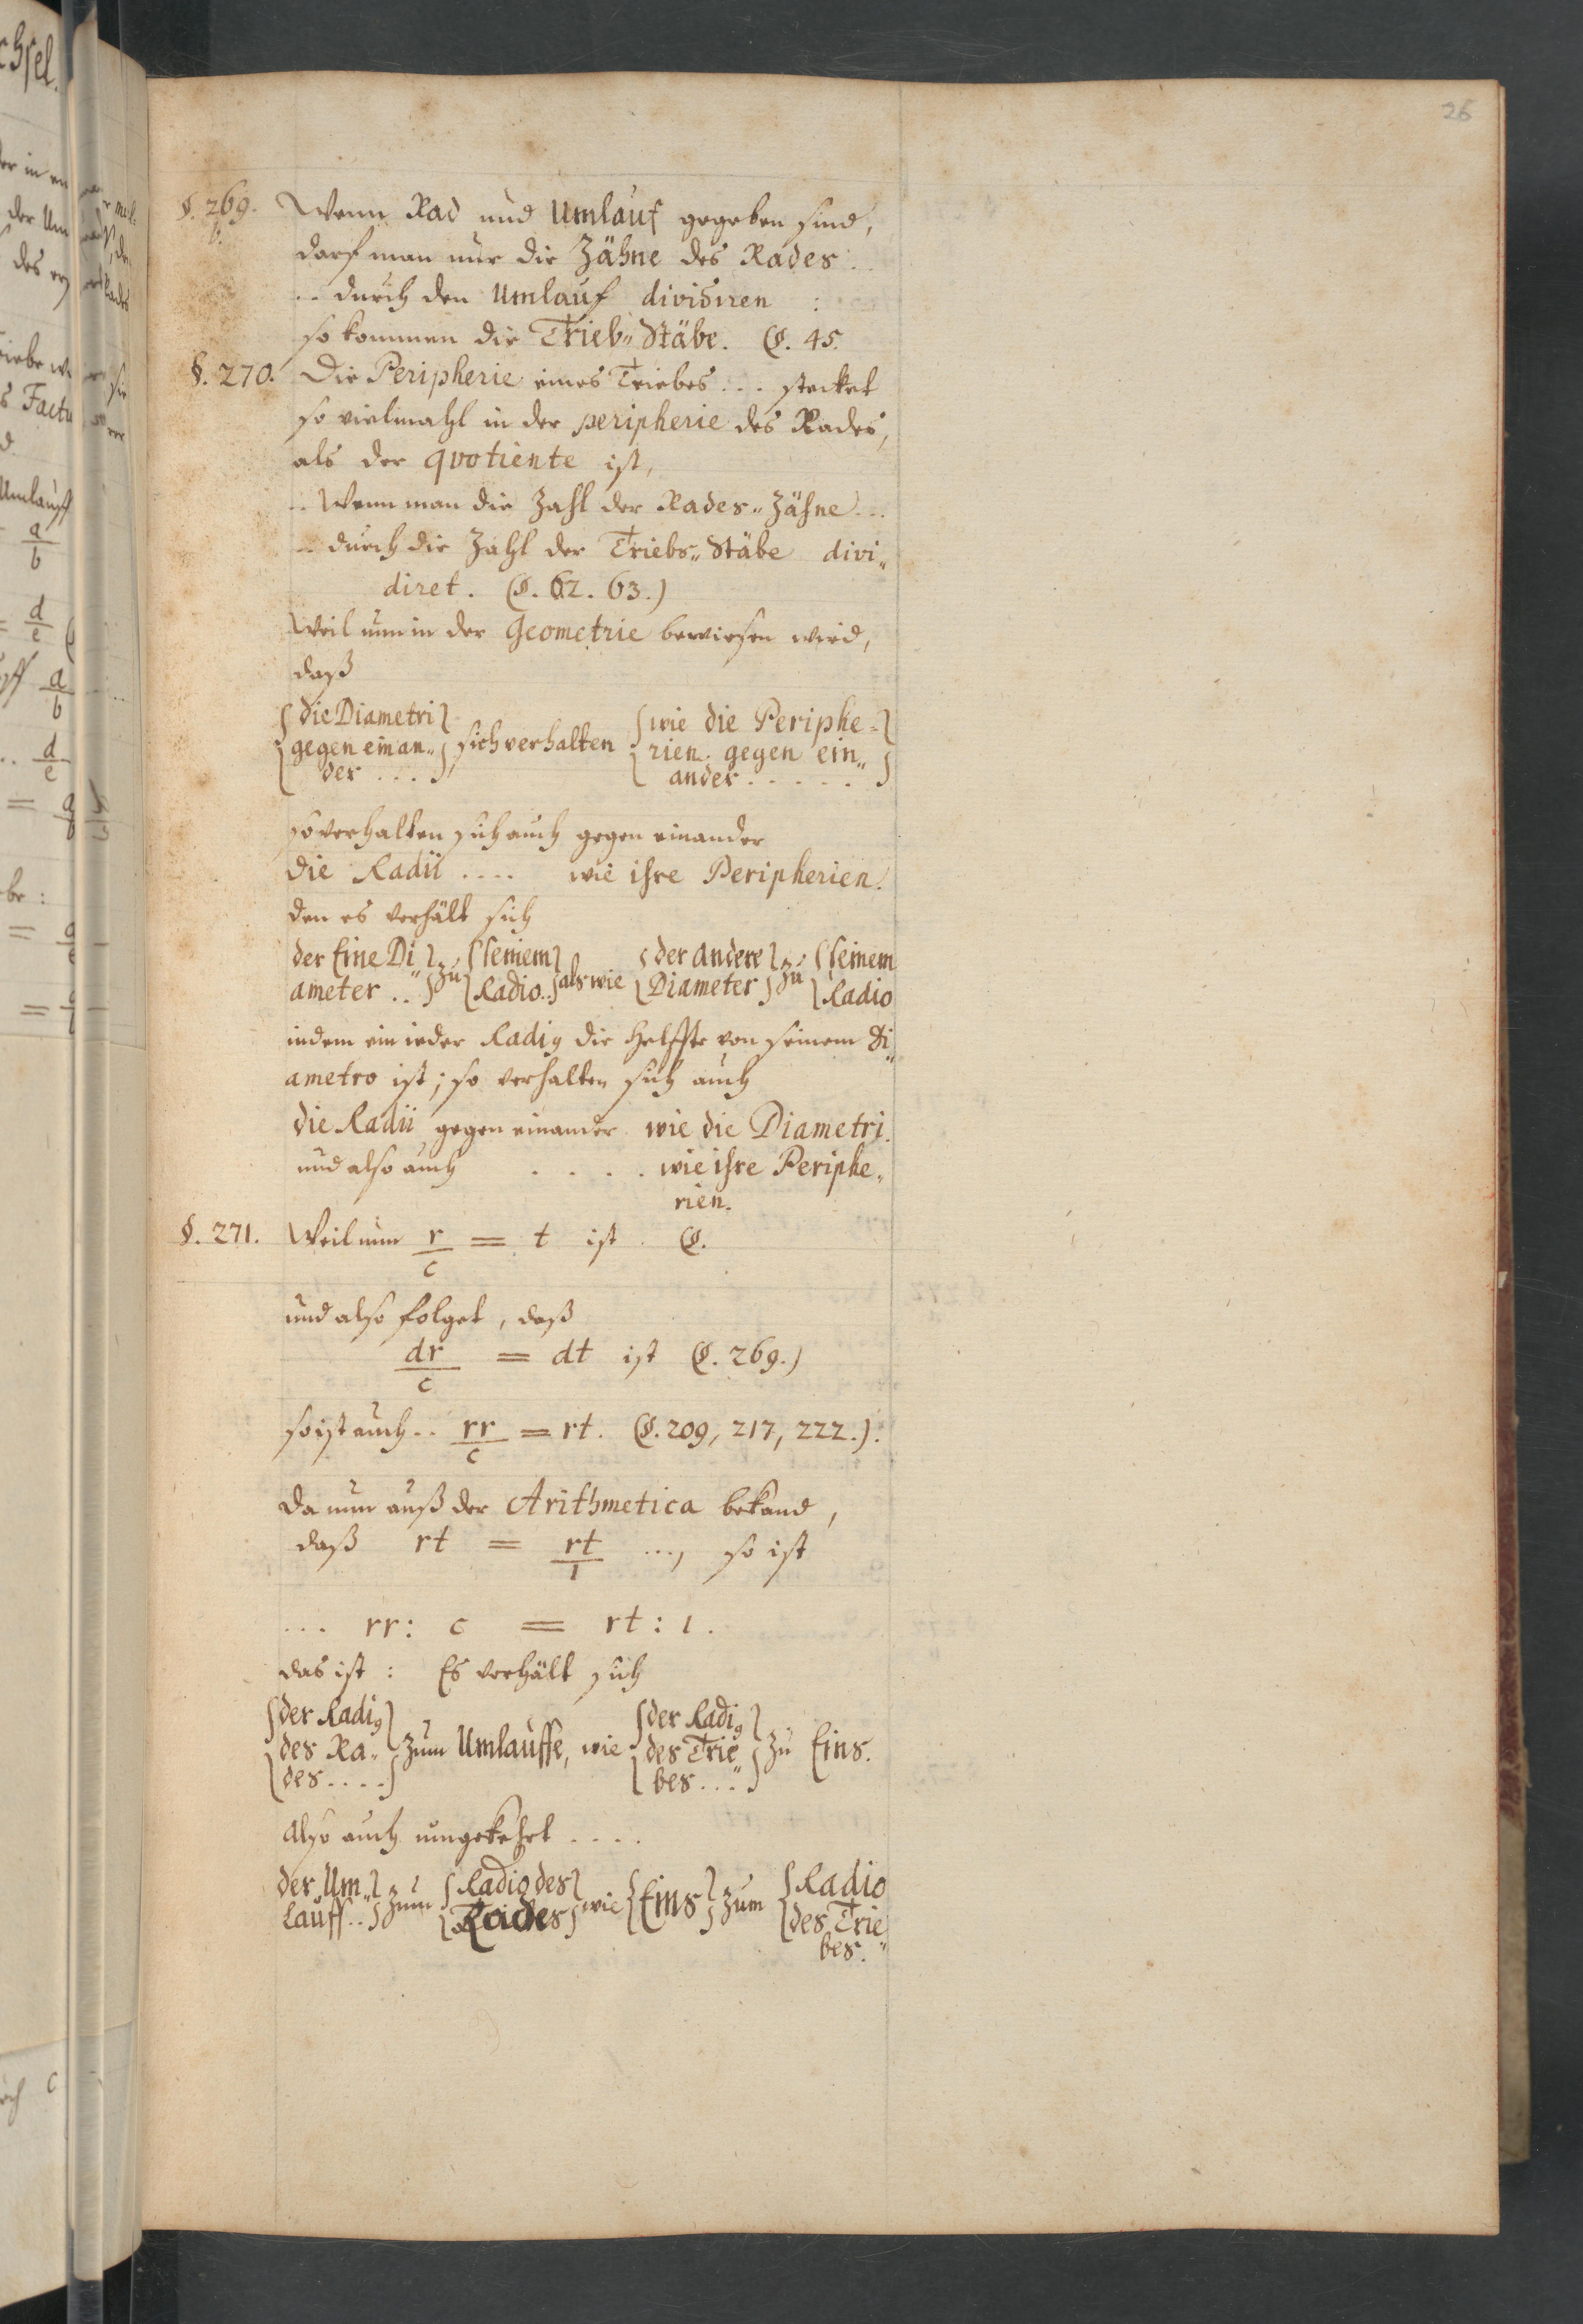 26
§. 269. Wenn Rad und Umlauf gegeben sind,
b.
darf man nur die Zähne des Rades ..
.. durch den Umlauf dividiren :
so kommen die Trieb„ Stäbe. (§. 45.
§. 270. Die Peripherie eines Triebes ... stecket
so vielmahl in der peripherie des Rades,
als der qvotiente ist,
.. Wenn man die Zahl der Rades„ Zähne ...
.. durch die Zahl der Triebs„ Stäbe divi„
diret. (§. 62. 63.)
Weil nun in der Geometrie bewiesen wird,
daß
{die Diametri} {wie die Periphe=}
{gegen einan„} sich verhalten {rien gegen ein„}
{der ....} {ander ......}
so verhalten sich auch gegen einander
die Radii .... wie ihre Peripherien.
den es verhält sich
der Eine Di„} zu {seinem} als wie {der andere} zu {seinem
ameter ..} {Radio..} {Diameter} {Radio
indem ein ieder Radiq die Helffte von seinem Di„
ametro ist; so verhalten sich auch
die Radii gegen einander wie die Diametri.
und also auch .... wie ihre Periphe„
rien.
§. 271. Weil nun r/c = t ist (§.
und also folget, daß
dr/c = dt ist (§. 269.)
so ist auch .. rr/c = rt. (§. 209, 217, 222.).
Da nun auß der Arithmetica bekand,
daß rt = rt/1 ..., so ist
... rr : c = rt : 1.
das ist : Es verhält sich
{der Radiq} {der Radiq}
{des Ra„} zum Umlauffe, wie {des Trie„} zu Eins.
{des ....} {bes ...}
Also auch umgekehrt ....
der Um„} zum {Radio des} wie {Eins} zum {Radio
lauff ..} {Rades} {des Trie„
bes.